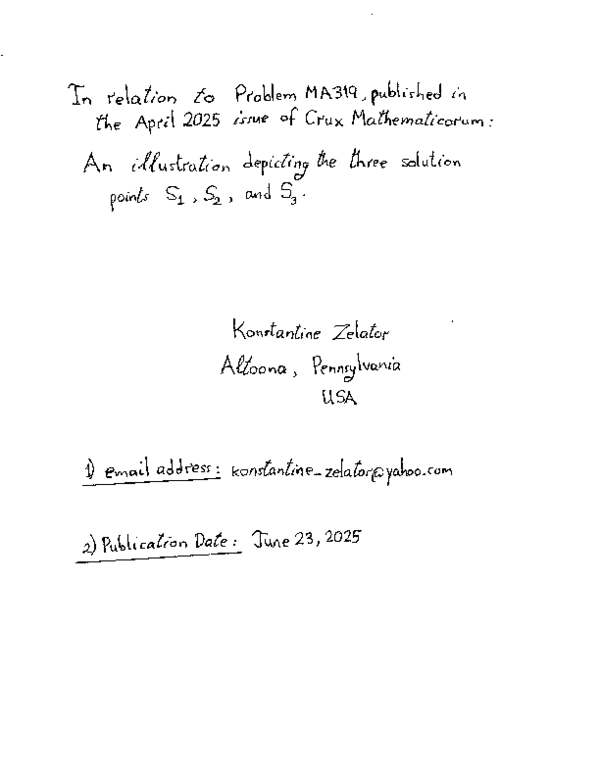 In relation to Problem MA319, published in
the April 2025 issue of Crux Mathematicorum:
An illustration depicting the three solution
points S₁, S₂, and S₃.
Konstantine Zelator
Altoona, Pennsylvania
USA
1) email address: konstantine_zelator@yahoo.com
2) Publication Date: June 23, 2025